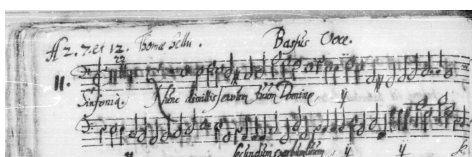 à 2. 7. et 12. Thomæ Sellii. Bassus Voce.
22
11.
Sinfonia. Nunc dimittis servum tuum Domine ij
secundum verbum tuum ij ij